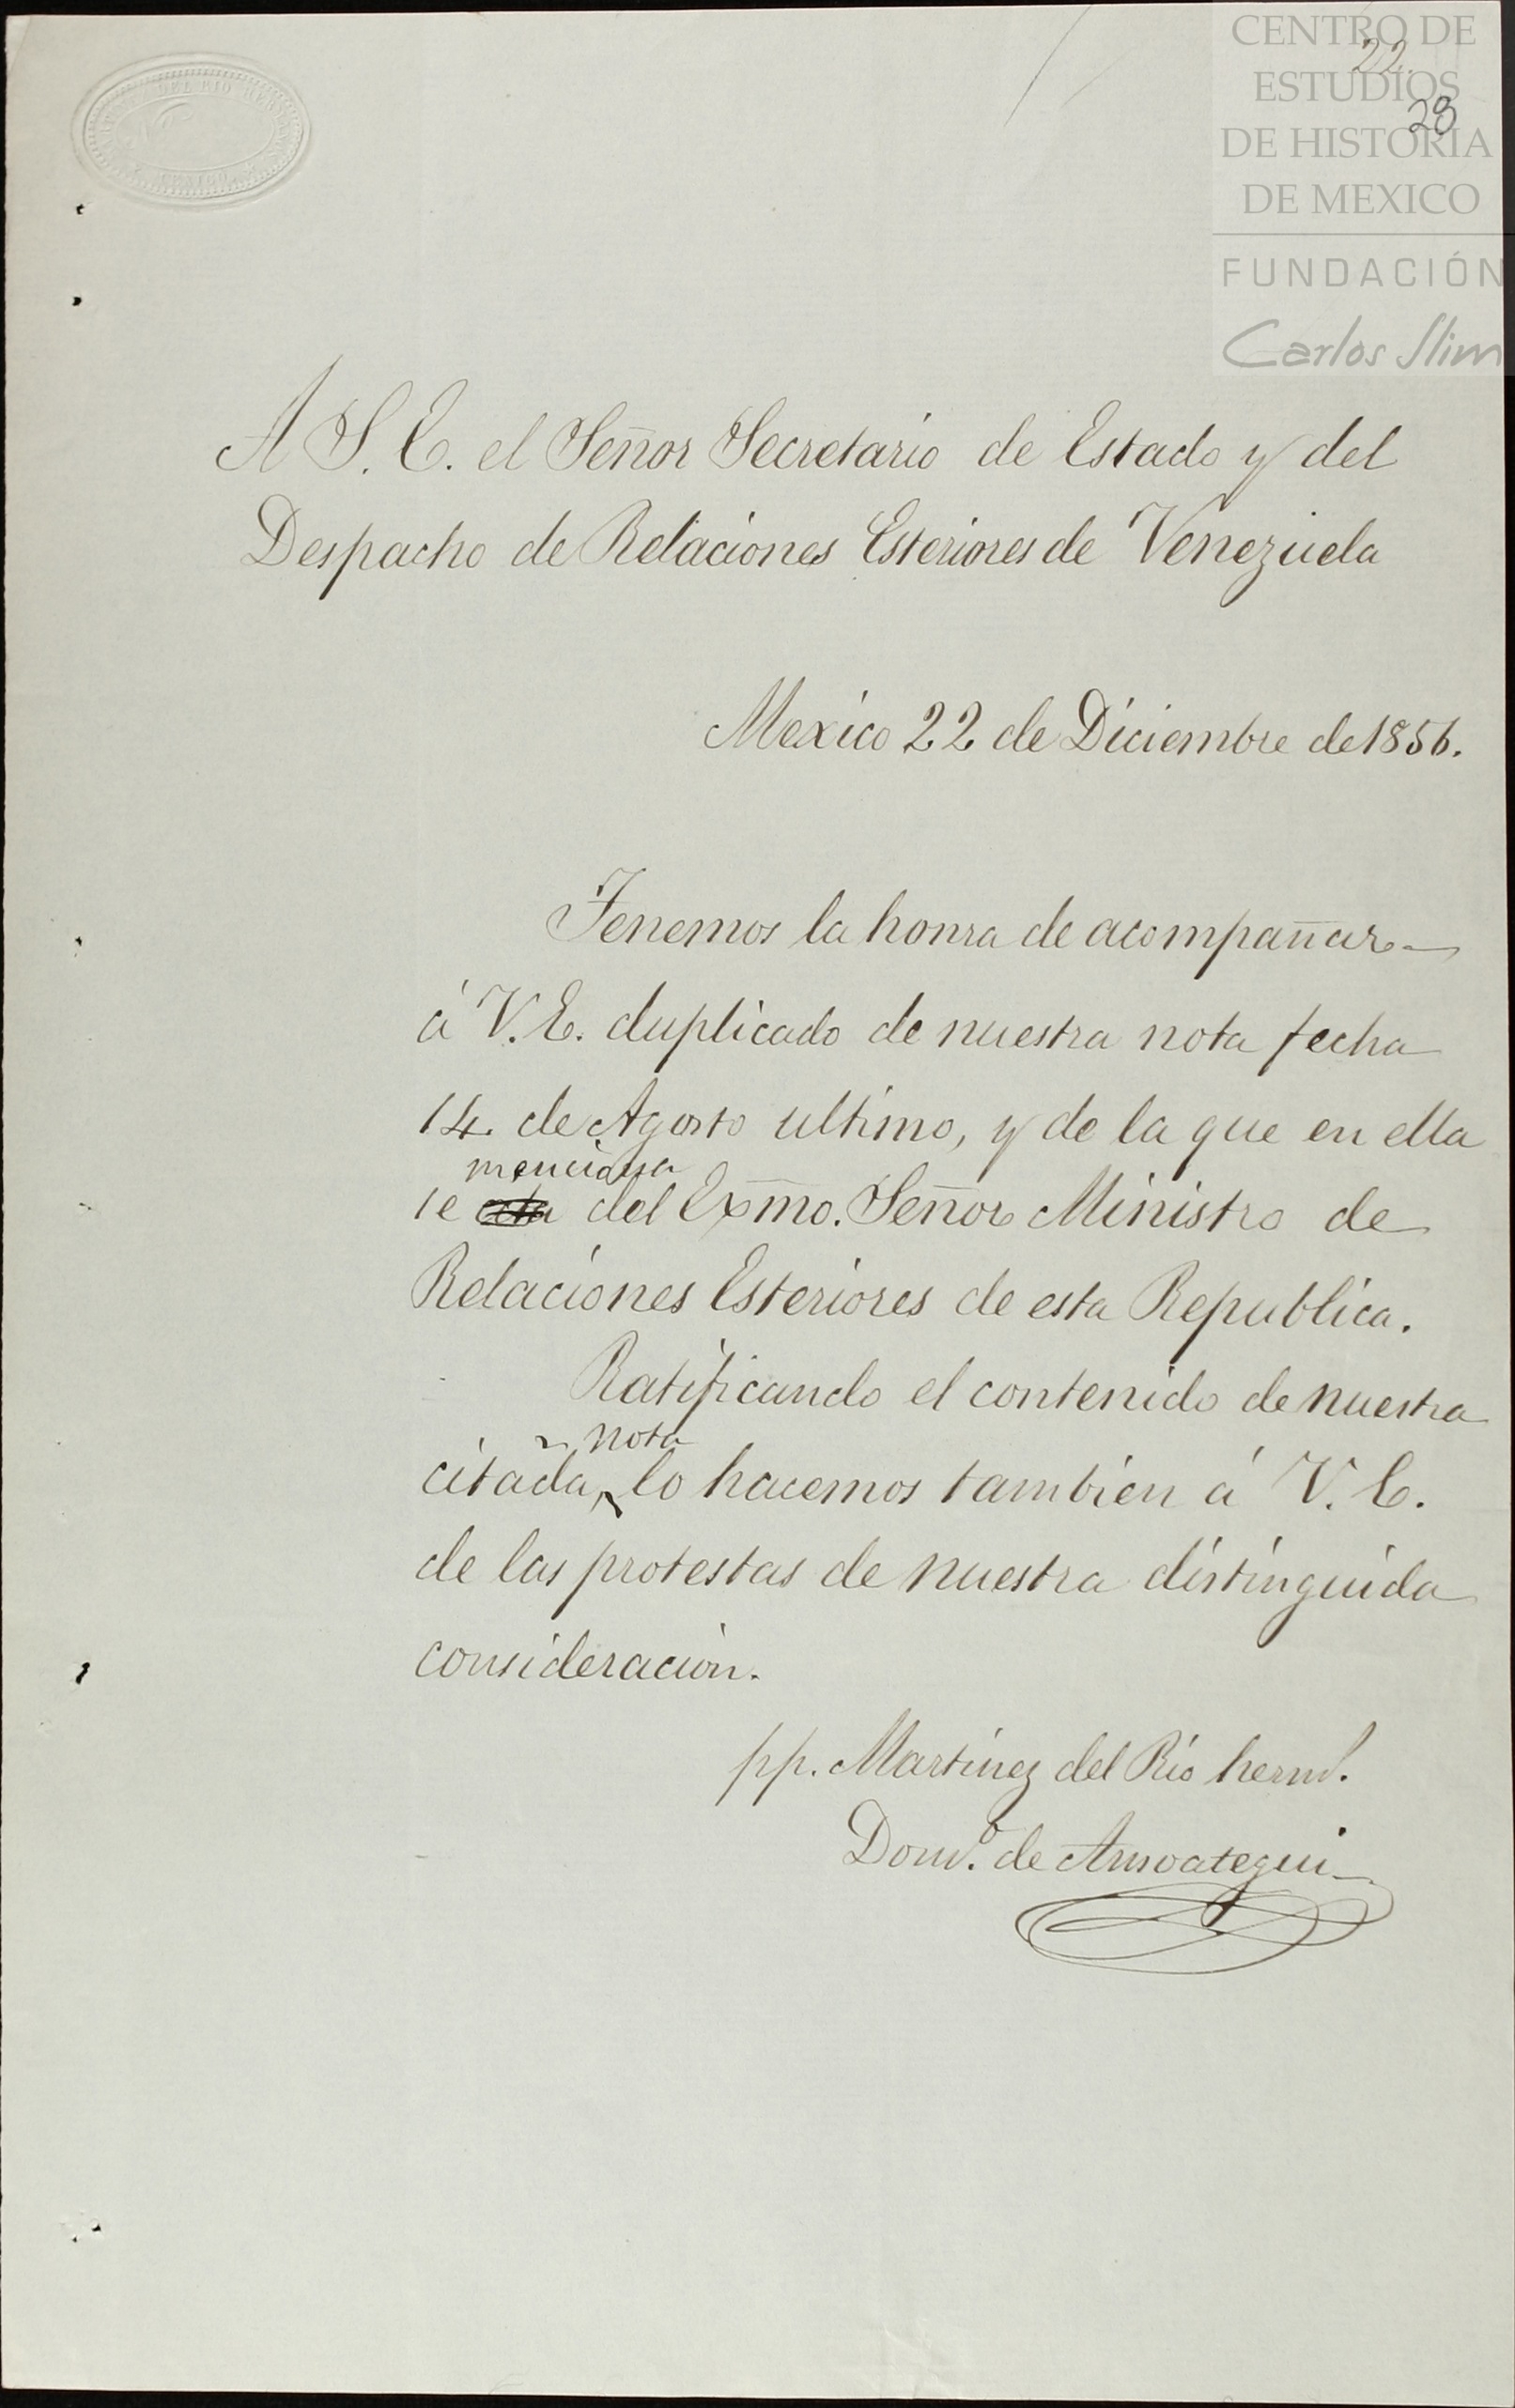 CENTRO DE
ESTUDIOS
DE HISTORIA
DE MEXICO
FUNDACIÓN
Carlos Slim
22.
28
DEL RIO HERMANOS
MEXICO
A S. E. el Señor Secretario de Estado y del
Despacho de Relaciones Esteriores de Venezuela
Mexico 22 de Diciembre de 1856.
Tenemos la honra de acompañar
á V. E. duplicado de nuestra nota fecha
14 de Agosto ultimo, y de la que en ella
menciona
se del Exmo. Señor Ministro de
Relaciones Esteriores de esta Republica.
Ratificando el contenido de nuestra
nota
citada, lo hacemos tambien á V. E.
de las protestas de nuestra distinguida
consideracion.
pp. Martinez del Rio hermˢ.
Domº. de Ansoategui